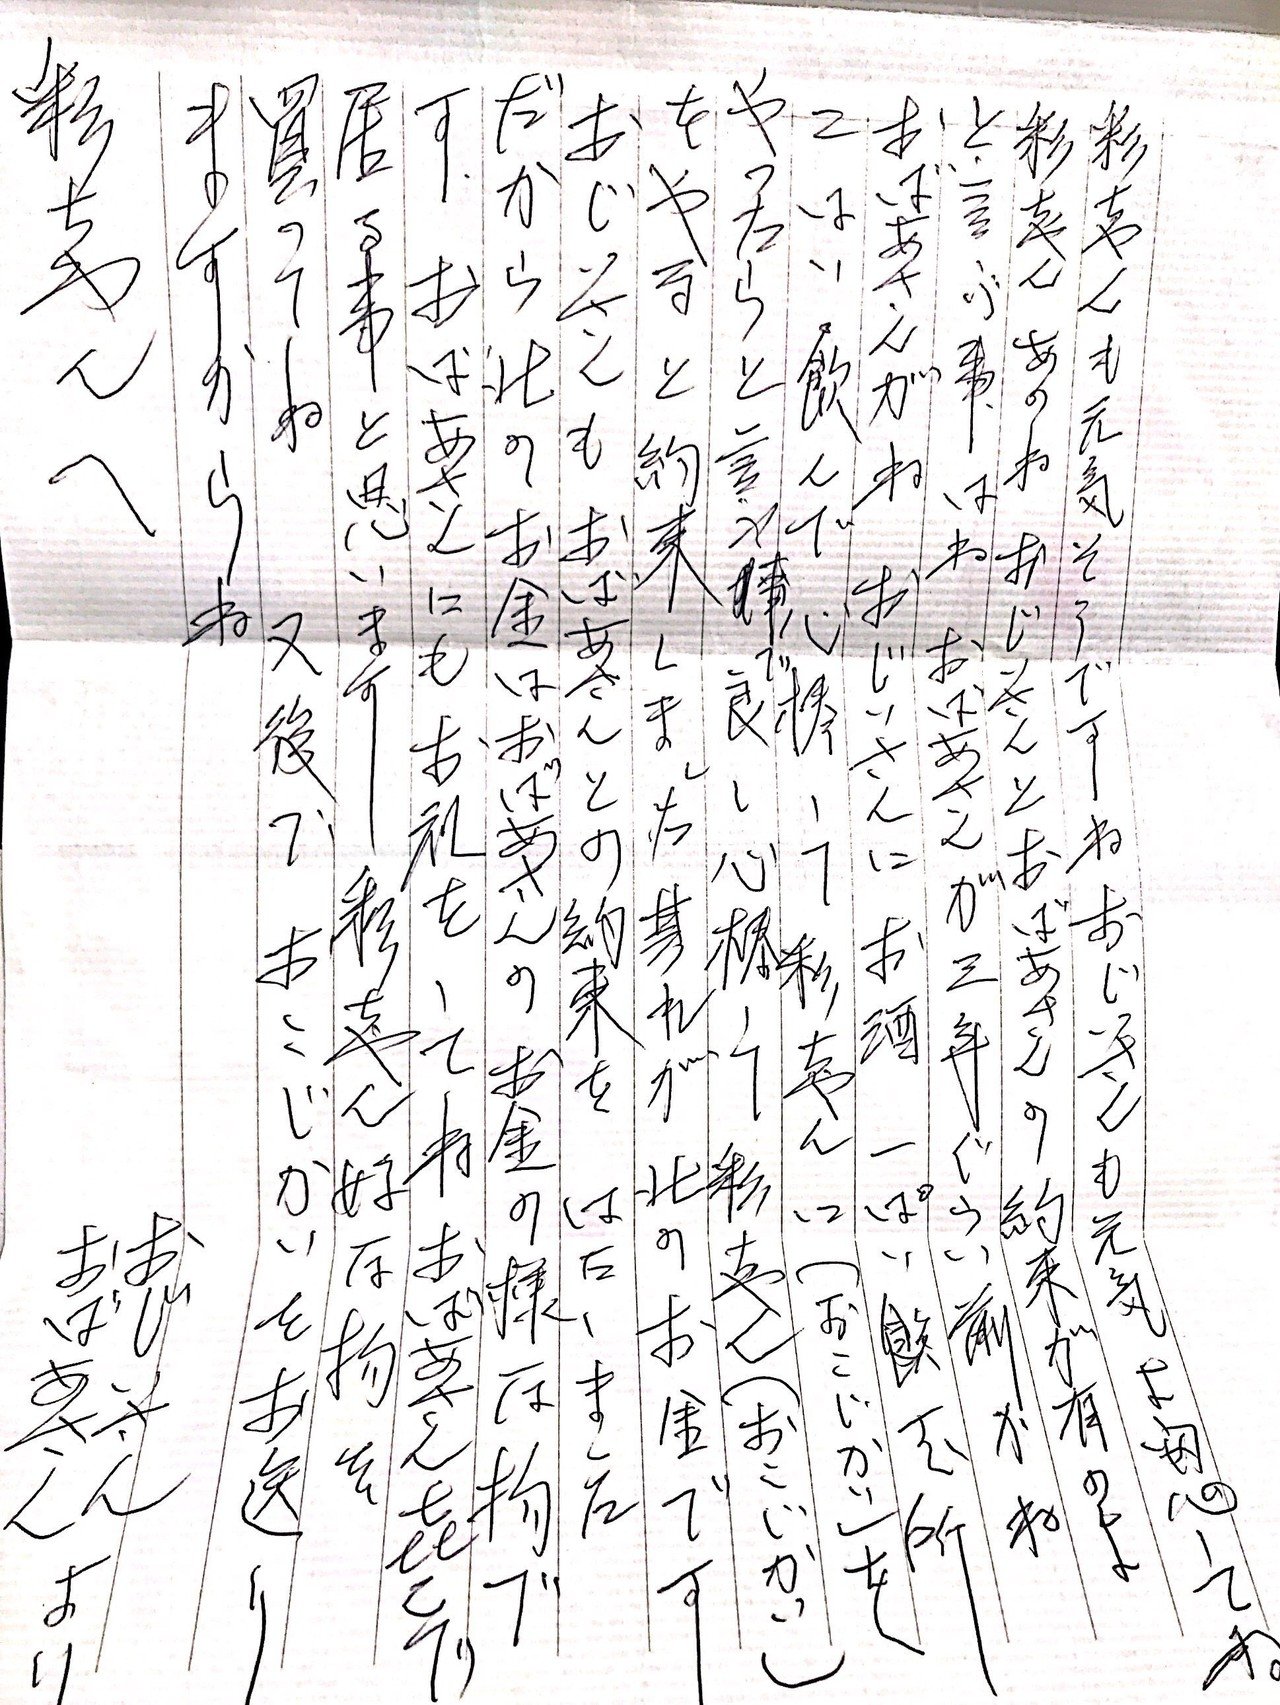 彩ちゃんも元気そうですねおじいさんも元気よ安心してね。
彩ちゃんあのねおじいさんとおばあさんの約束が有のよ
と言う事はねおばあさんが三年ぐらい前かね
おばあさんがねおじいさんにお酒一ぱい飲ん所
こはい飲んで心棒して彩ちゃんに(おこじかい)を
やったらと言う事で良し心棒して彩ちゃん(おこじかい)
をやると約束しました其れが北のお金です
おじいさんもおばあさんとの約束をはたいました
だから北のお金はおばあさんのお金の様な物で
す、おばあさんにもお礼をしてねおばあさん㐂こび
居る事と思います彩ちゃん好な物を
買ってね又後でおこじかいをお送り
ますからね
おじいさん
おばあさんより
彩ちゃんへ